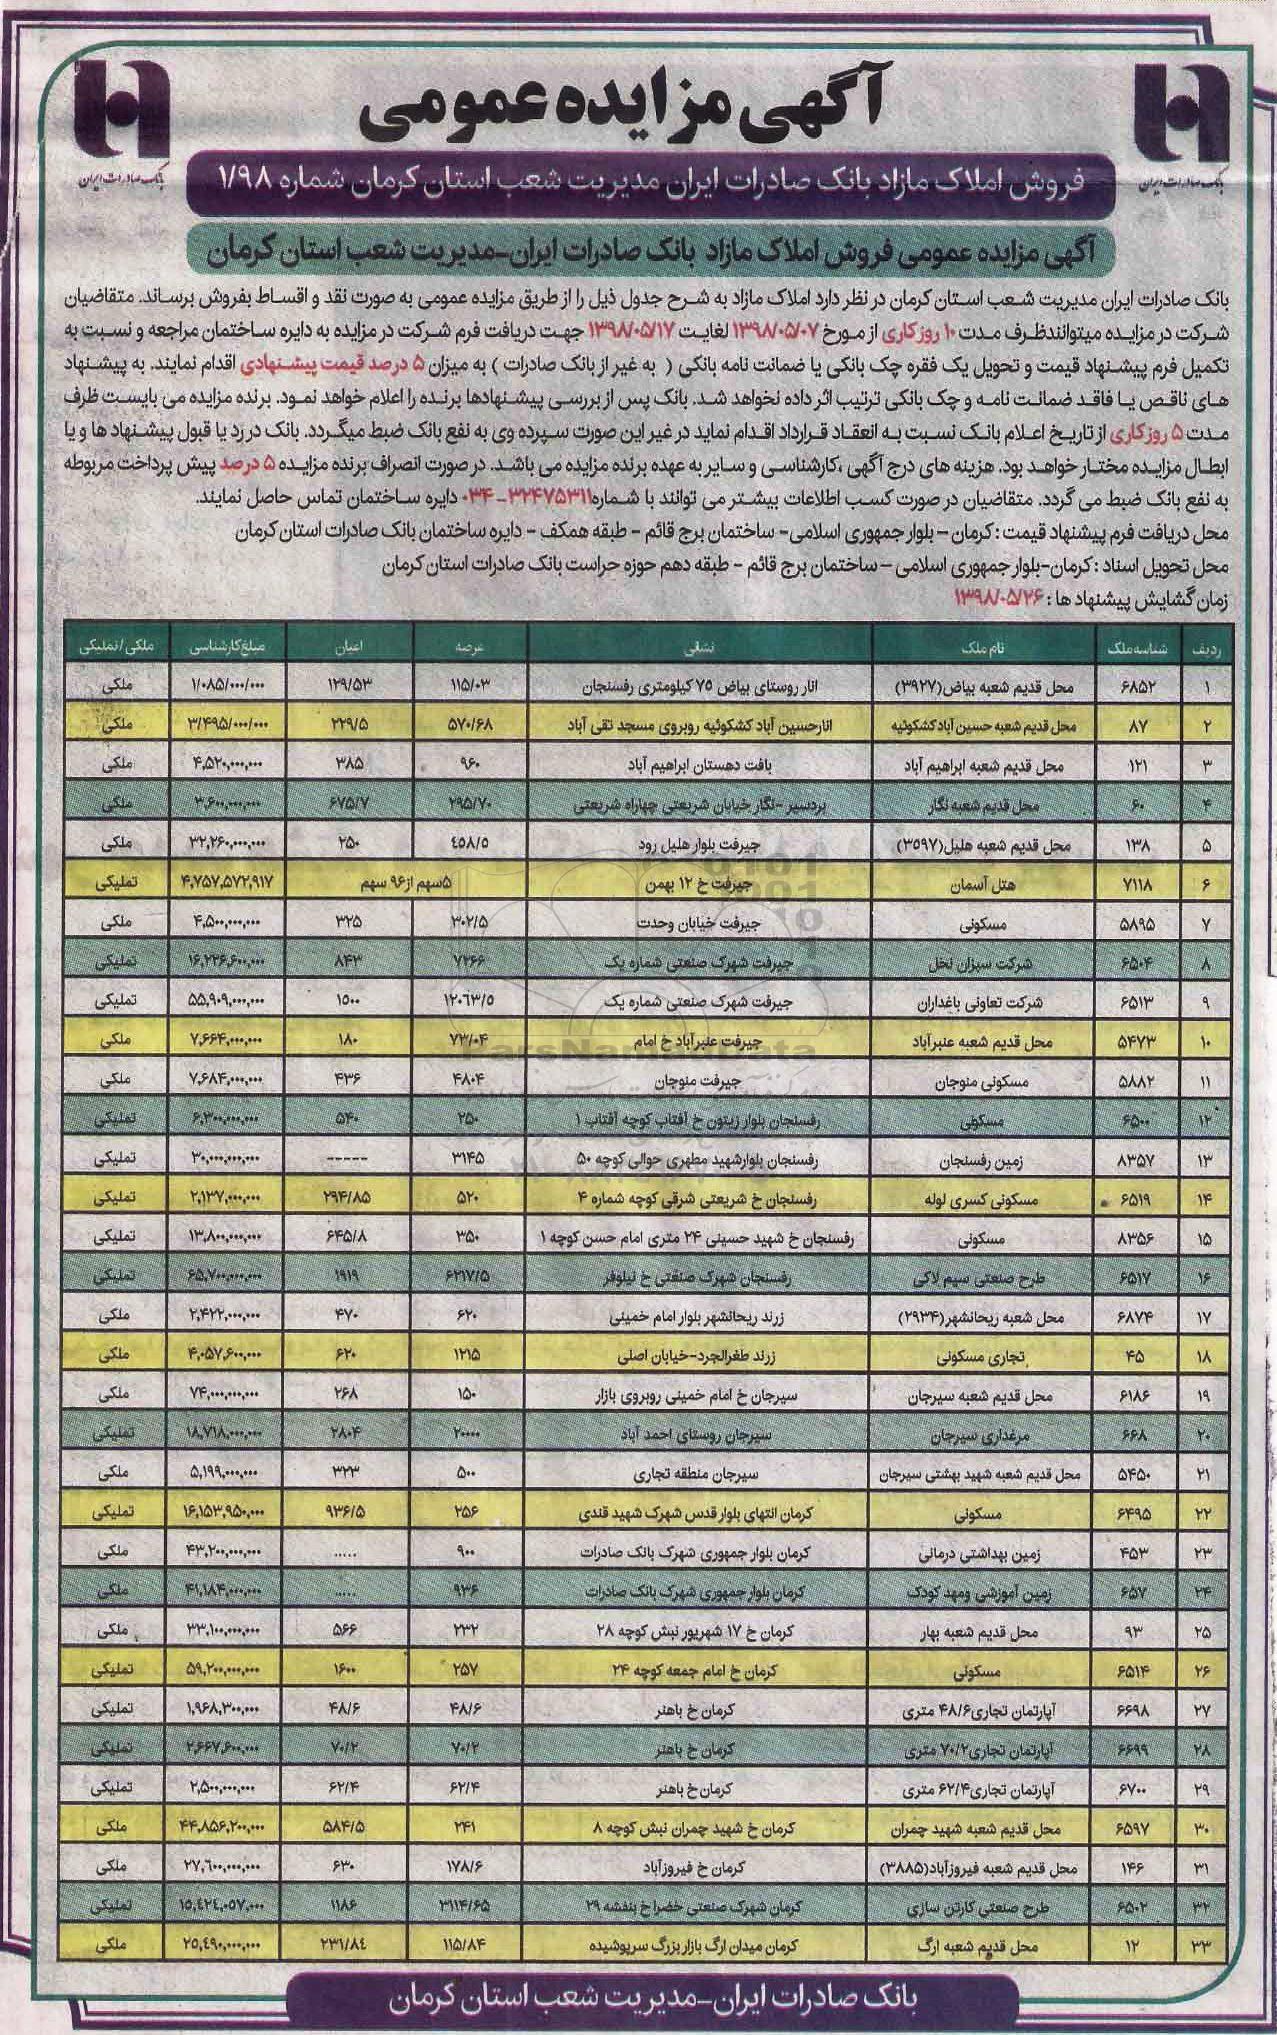 آگهی مزایده عمومی
بانک صادرات ایران
بانک صادرات ایران
فروش املاک مازاد بانک صادرات ایران مدیریت شعب استان کرمان شماره ۱/۹۸
آگهی مزایده عمومی فروش املاک مازاد بانک صادرات ایران-مدیریت شعب استان کرمان
بانک صادرات ایران مدیریت شعب استان کرمان در نظر دارد املاک مازاد به شرح جدول ذیل را از طریق مزایده عمومی به صورت نقد و اقساط بفروش برساند. متقاضیان
شرکت در مزایده میتوانندظرف مدت ۱۰ روز کاری از مورخ ۱۳۹۸/۰۵/۰۷ لغایت ۱۳۹۸/۰۵/۱۷ جهت دریافت فرم شرکت در مزایده به دایره ساختمان مراجعه و نسبت به
تکمیل فرم پیشنهاد قیمت و تحویل یک فقره چک بانکی یا ضمانت نامه بانکی ( به غیر از بانک صادرات ) به میزان ۵ درصد قیمت پیشنهادی اقدام نمایند. به پیشنهاد
های ناقص یا فاقد ضمانت نامه و چک بانکی ترتیب اثر داده نخواهد شد. بانک پس از بررسی پیشنهادها برنده را اعلام خواهد نمود. برنده مزایده می بایست ظرف
مدت ۵ روز کاری از تاریخ اعلام بانک نسبت به انعقاد قرارداد اقدام نماید در غیر این صورت سپرده وی به نفع بانک ضبط میگردد. بانک در رد یا قبول پیشنهاد ها و یا
ابطال مزایده مختار خواهد بود. هزینه های درج آگهی ،کارشناسی و سایر به عهده برنده مزایده می باشد. در صورت انصراف برنده مزایده ۵ درصد پیش پرداخت مربوطه
به نفع بانک ضبط می گردد. متقاضیان در صورت کسب اطلاعات بیشتر می توانند با شماره۳۲۴۷۵۳۱۱-۰۳۴ دایره ساختمان تماس حاصل نمایند.
محل دریافت فرم پیشنهاد قیمت : کرمان - بلوار جمهوری اسلامی- ساختمان برج قائم - طبقه همکف - دایره ساختمان بانک صادرات استان کرمان
محل تحویل اسناد : کرمان-بلوار جمهوری اسلامی - ساختمان برج قائم - طبقه دهم حوزه حراست بانک صادرات استان کرمان
زمان گشایش پیشنهاد ها : ۱۳۹۸/۰۵/۲۶
ردیف شناسه ملک نام ملک نشانی عرصه اعیان مبلغ کارشناسی ملکی/تملیکی
۱ ۶۸۵۲ محل قدیم شعبه بیاض(۳۹۲۷) انار روستای بیاض ۷۵ کیلومتری رفسنجان ۱۱۵/۰۳ ۱۲۹/۵۳ ۱/۰۸۵/۰۰۰/۰۰۰ ملکی
۲ ۸۷ محل قدیم شعبه حسین آباد کشکوئیه انارحسین آباد کشکوئیه روبروی مسجد تقی آباد ۵۷۰/۶۸ ۲۲۹/۵ ۳/۴۹۵/۰۰۰/۰۰۰ ملکی
۳ ۱۲۱ محل قدیم شعبه ابراهیم آباد بافت دهستان ابراهیم آباد ۹۶۰ ۳۸۵ ۴,۵۲۰,۰۰۰,۰۰۰ ملکی
۴ ۶۰ محل قدیم شعبه نگار بردسیر -نگار خیابان شریعتی چهاراه شریعتی ۲۹۵/۷۰ ۶۷۵/۷ ۳,۶۰۰,۰۰۰,۰۰۰ ملکی
۵ ۱۳۸ محل قدیم شعبه هلیل(۳۵۹۷) جیرفت بلوار هلیل رود ۴۵۸/۵ ۲۵۰ ۳۲,۲۶۰,۰۰۰,۰۰۰ ملکی
۶ ۷۱۱۸ هتل آسمان جیرفت خ ۱۲ بهمن ۵سهم از۹۶ سهم ۴,۷۵۷,۵۷۲,۹۱۷ تملیکی
۷ ۵۸۹۵ مسکونی جیرفت خیابان وحدت ۳۰۲/۵ ۳۲۵ ۴,۵۰۰,۰۰۰,۰۰۰ ملکی
۸ ۶۵۰۴ شرکت سبزان نخل جیرفت شهرک صنعتی شماره یک ۷۲۶۶ ۸۴۳ ۱۶,۲۲۶,۶۰۰,۰۰۰ تملیکی
۹ ۶۵۱۳ شرکت تعاونی باغداران جیرفت شهرک صنعتی شماره یک ۱۲۰۶۳/۵ ۱۵۰۰ ۵۵,۹۰۹,۰۰۰,۰۰۰ تملیکی
۱۰ ۵۴۷۳ محل قدیم شعبه عنبرآباد جیرفت عنبرآباد خ امام ۷۳/۰۴ ۱۸۰ ۷,۶۶۴,۰۰۰,۰۰۰ ملکی
۱۱ ۵۸۸۲ مسکونی منوجان جیرفت منوجان ۴۸۰۴ ۴۳۶ ۷,۶۸۴,۰۰۰,۰۰۰ ملکی
۱۲ ۶۵۰۰ مسکونی رفسنجان بلوار زیتون خ آفتاب کوچه آفتاب ۱ ۲۵۰ ۵۴۰ ۶,۳۰۰,۰۰۰,۰۰۰ تملیکی
۱۳ ۸۳۵۷ زمین رفسنجان رفسنجان بلوارشهید مطهری حوالی کوچه ۵۰ ۳۱۴۵ ----- ۳۰,۰۰۰,۰۰۰,۰۰۰ تملیکی
۱۴ ۶۵۱۹ مسکونی کسری لوله رفسنجان خ شریعتی شرقی کوچه شماره ۴ ۵۲۰ ۲۹۴/۸۵ ۲,۱۳۷,۰۰۰,۰۰۰ تملیکی
۱۵ ۸۳۵۶ مسکونی رفسنجان خ شهید حسینی ۲۴ متری امام حسن کوچه ۱ ۳۵۰ ۶۴۵/۸ ۱۳,۸۰۰,۰۰۰,۰۰۰ تملیکی
۱۶ ۶۵۱۷ طرح صنعتی سپم لاکی رفسنجان شهرک صنعتی خ نیلوفر ۶۲۱۷/۵ ۱۹۱۹ ۶۵,۷۰۰,۰۰۰,۰۰۰ تملیکی
۱۷ ۶۸۷۴ محل شعبه ریحانشهر(۲۹۳۴) زرند ریحانشهر بلوار امام خمینی ۶۲۰ ۴۷۰ ۲,۴۲۲,۰۰۰,۰۰۰ ملکی
۱۸ ۴۵ تجاری مسکونی زرند طغرالجرد-خیابان اصلی ۱۲۱۵ ۶۲۰ ۴,۰۵۷,۶۰۰,۰۰۰ ملکی
۱۹ ۶۱۸۶ محل قدیم شعبه سیرجان سیرجان خ امام خمینی روبروی بازار ۱۵۰ ۲۶۸ ۷۴,۰۰۰,۰۰۰,۰۰۰ ملکی
۲۰ ۶۶۸ مرغداری سیرجان سیرجان روستای احمد آباد ۲۰۰۰۰ ۲۸۰۴ ۱۸,۷۱۸,۰۰۰,۰۰۰ تملیکی
۲۱ ۵۴۵۰ محل قدیم شعبه شهید بهشتی سیرجان سیرجان منطقه تجاری ۵۰۰ ۳۲۳ ۵,۱۹۹,۰۰۰,۰۰۰ ملکی
۲۲ ۶۴۹۵ مسکونی کرمان انتهای بلوار قدس شهرک شهید قندی ۲۵۶ ۹۳۶/۵ ۱۶,۱۵۳,۹۵۰,۰۰۰ تملیکی
۲۳ ۴۵۳ زمین بهداشتی درمانی کرمان بلوار جمهوری شهرک بانک صادرات ۹۰۰ ..... ۴۳,۲۰۰,۰۰۰,۰۰۰ ملکی
۲۴ ۶۵۷ زمین آموزشی ومهد کودک کرمان بلوار جمهوری شهرک بانک صادرات ۹۳۶ ..... ۴۱,۱۸۴,۰۰۰,۰۰۰ ملکی
۲۵ ۹۳ محل قدیم شعبه بهار کرمان خ ۱۷ شهریور نبش کوچه ۲۸ ۲۳۲ ۵۶۶ ۳۳,۱۰۰,۰۰۰,۰۰۰ ملکی
۲۶ ۶۵۱۴ مسکونی کرمان خ امام جمعه کوچه ۲۴ ۲۵۷ ۱۶۰۰ ۵۹,۲۰۰,۰۰۰,۰۰۰ تملیکی
۲۷ ۶۶۹۸ آپارتمان تجاری۴۸/۶ متری کرمان خ باهنر ۴۸/۶ ۴۸/۶ ۱,۹۶۸,۳۰۰,۰۰۰ تملیکی
۲۸ ۶۶۹۹ آپارتمان تجاری۷۰/۲ متری کرمان خ باهنر ۷۰/۲ ۷۰/۲ ۲,۶۶۷,۶۰۰,۰۰۰ تملیکی
۲۹ ۶۷۰۰ آپارتمان تجاری۶۲/۴ متری کرمان خ باهنر ۶۲/۴ ۶۲/۴ ۲,۵۰۰,۰۰۰,۰۰۰ تملیکی
۳۰ ۶۵۹۷ محل قدیم شعبه شهید چمران کرمان خ شهید چمران نبش کوچه ۸ ۲۴۱ ۵۸۴/۵ ۴۴,۸۵۶,۲۰۰,۰۰۰ ملکی
۳۱ ۱۴۶ محل قدیم شعبه فیروزآباد(۳۸۸۵) کرمان خ فیروزآباد ۱۷۸/۶ ۶۳۰ ۲۷,۶۰۰,۰۰۰,۰۰۰ ملکی
۳۲ ۶۵۰۲ طرح صنعتی کارتن سازی کرمان شهرک صنعتی خضرا خ بنفشه ۲۹ ۳۱۱۴/۶۵ ۱۱۸۶ ۱۵,۴۲۴,۰۵۷,۰۰۰ تملیکی
۳۳ ۱۲ محل قدیم شعبه ارگ کرمان میدان ارگ بازار بزرگ سرپوشیده ۱۱۵/۸۴ ۲۳۱/۸۴ ۲۵,۴۹۰,۰۰۰,۰۰۰ ملکی
بانک صادرات ایران-مدیریت شعب استان کرمان